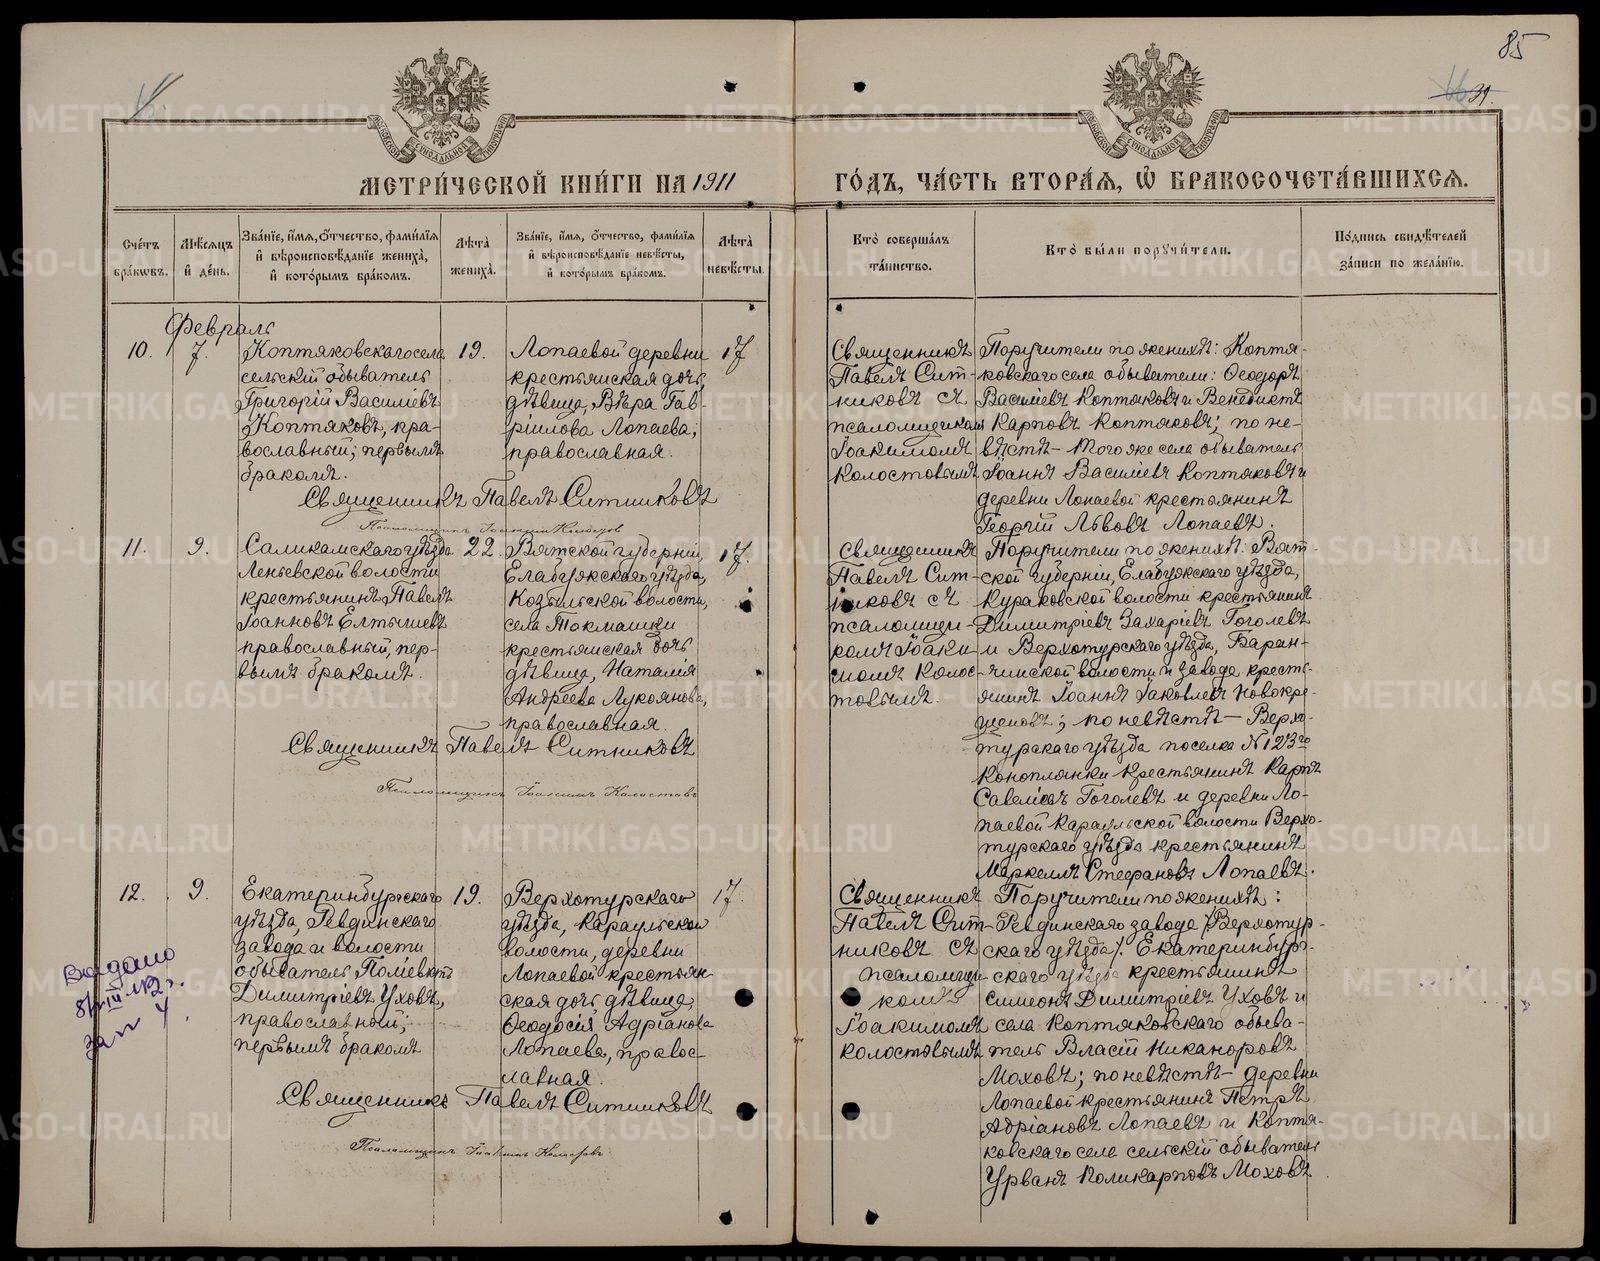 85
39.
МЕТРИ́ЧЕСКОЙ КНИ́ГИ НА 1911
ГО́ДЪ, ЧА́СТЬ ВТОРА́Я, Ѿ БРАКОСОЧЕТА́ВШИХСЯ.
Сче́тъ бра́ковъ.
Мѣ́сяцъ и́ де́нь.
Зва́нїе, и́мя, о́тчество, фами́лїя и́ вѣроисповѣ́данїе жениха̀, и́ кото́рымъ бра́комъ.
Лѣ́та̀ жениха̀.
Зва́нїе, и́мя, о́тчество, фами́лїя и́ вѣроисповѣ́данїе невѣ́сты, и́ кото́рымъ бра́комъ.
Лѣ́та̀ невѣ́сты.
Кто̀ соверша́лъ та́инство.
Кто̀ бы́ли поручи́тели.
По́дпись свидѣ́телей за́писи по жела́нїю.
Февраль
10.
7.
Коптяковскаго села
сельскій обыватель
Григорій Василіевъ
Коптяковъ, пра-
вославный; первымъ
бракомъ.
19.
Лопаевой деревни
крестьянская дочь,
дѣвица, Вѣра Гав-
ріилова Лопаева,
православная.
17
Священникъ
Павелъ Сит-
никовъ съ
псаломщикомъ
Іоакимомъ
Колостовымъ
Поручители по женихѣ: Коптя-
ковскаго села обыватели: Ѳеодоръ
Василіевъ Коптяковъ и Венедиктъ
Карповъ Коптяковъ; по не-
вѣстѣ – того же села обыватель
Іоаннъ Василіевъ Коптяковъ и
деревни Лопаевой крестьянинъ
Георгій Львовъ Лопаевъ.
Священникъ Павелъ Ситниковъ
Псаломщикъ Іоакимъ Колостовъ
11.
9.
Соликамскаго уѣзда
Леньевской волости
крестьянинъ Павелъ
Іоанновъ Елтышевъ
православный, пер-
вымъ бракомъ.
22.
Вятской губерніи,
Елабужскаго уѣзда,
Козыльской волости,
села Токмашки
крестьянская дочь
дѣвица, Наталія
Андреева Лукоянова,
православная.
17.
Священникъ
Павелъ Сит-
никовъ съ
псаломщи-
комъ Іоаки-
момъ Колос-
товымъ.
Поручители по женихѣ: Вят-
ской губерніи, Елабужскаго уѣзда,
Кураковской волости крестьянинъ
Димитріевъ Захаріевъ Гоголевъ
и Верхотурскаго уѣзда, Баран-
чинской волости и завода кресть-
янинъ Іоаннъ Іаковлевъ Новокре-
щеновъ; по невѣстѣ – Верхо-
турскаго уѣзда поселка N 123го
Коноплянки крестьянинъ Карпъ
Савеліевъ Гоголевъ и деревни Ло-
паевой Караульской волости Верхо-
турскаго уѣзда крестьянинъ
Маркеллъ Стефановъ Лопаевъ.
Священникъ Павелъ Ситниковъ
Псаломщикъ Іоакимъ Колостовъ
12.
9.
Екатеринбургскаго
уѣзда, Ревдинскаго
завода и волости
обыватель Поліевктъ
Димитріевъ Уховъ,
православный;
первымъ бракомъ
19.
Верхотурскаго
уѣзда, Караульской
волости, деревни
Лопаевой крестьян-
ская дочь, дѣвица,
Ѳеодосія Адріанова
Лопаева, правос-
лавная.
17.
Священникъ
Павелъ Сит-
никовъ съ
псаломщи-
комъ
Іоакимомъ
Колостовымъ
Поручители по женихѣ:
Ревдинскаго завода (Верхотур-
скаго уѣзда). Екатеринбург-
скаго уѣзда крестьянинъ
Симеонъ Димитріевъ Уховъ и
села Коптяковскаго обыва-
тель Власій Никаноровъ
Моховъ; по невѣстѣ – деревни
Лопаевой крестьянинъ Петръ
Адріановъ Лопаевъ и Коптя-
ковскаго села сельскій обыватель
Урванъ Поликарповъ Моховъ
Священникъ Павелъ Ситниковъ
Псаломщикъ Іоакимъ Колостовъ
Выдано
METRIKI.GASO-URAL.RU